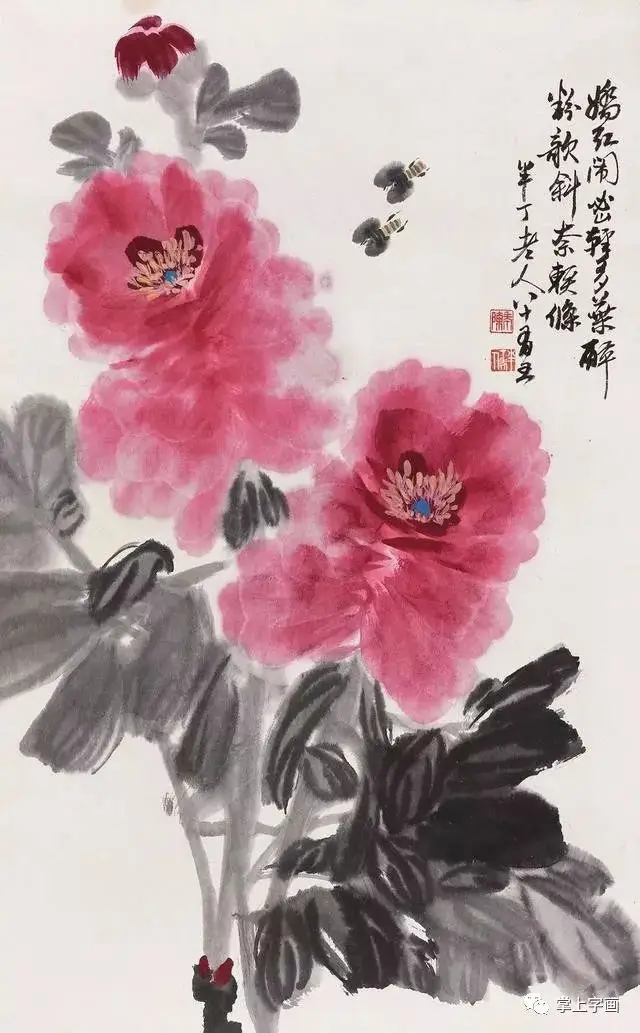 嬌红闹輕多葉醉
粉欹斜奈軟條
半丁老人八十有五
掌上字画